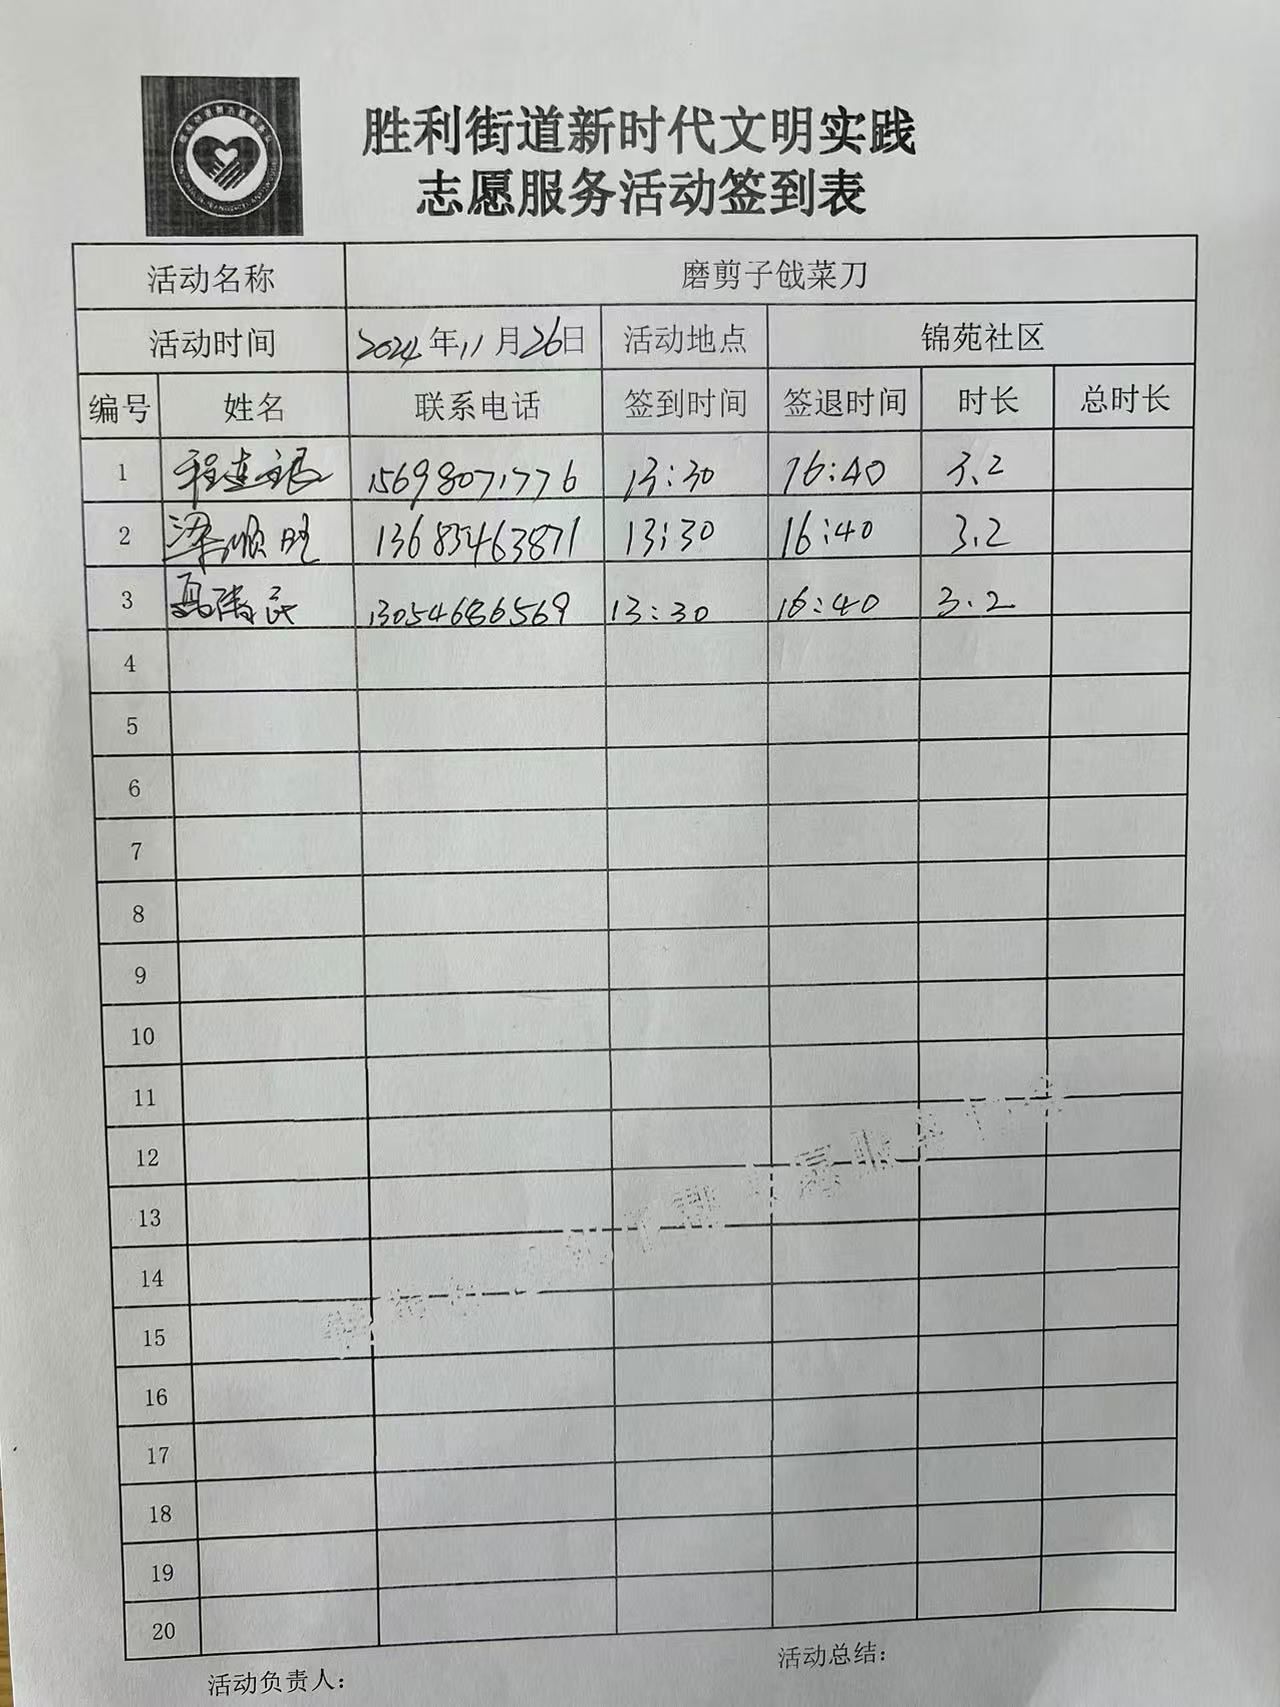 胜利街道新时代文明实践
志愿服务活动签到表
活动名称 磨剪子戗菜刀
活动时间 2024年11月26日 活动地点 锦苑社区
编号 姓名 联系电话 签到时间 签退时间 时长 总时长
1 程连银 15698071776 13:30 16:40 3.2
2 梁顺旺 13685463871 13:30 16:40 3.2
3 13054686569 13:30 16:40 3.2
4
5
6
7
8
9
10
11
12
13
14
15
16
17
18
19
20
活动负责人： 活动总结：